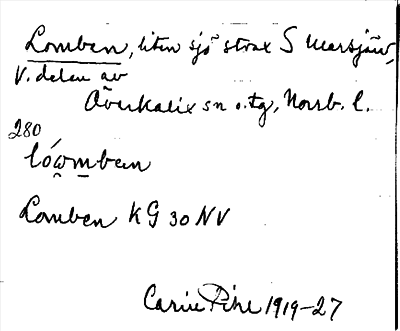 Lomben, liten sjö strax S Marsjärv,
V. delen av
Överkalix sn o. tg, Norrb. l.
280
lówmben
Lomben KG 30 NV
Carin Pihl 1919-27